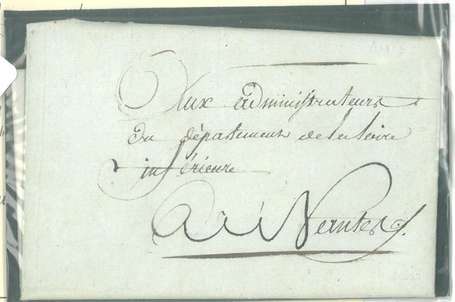 Aux administrateurs
du département de la loire
inférieure
à Nantes